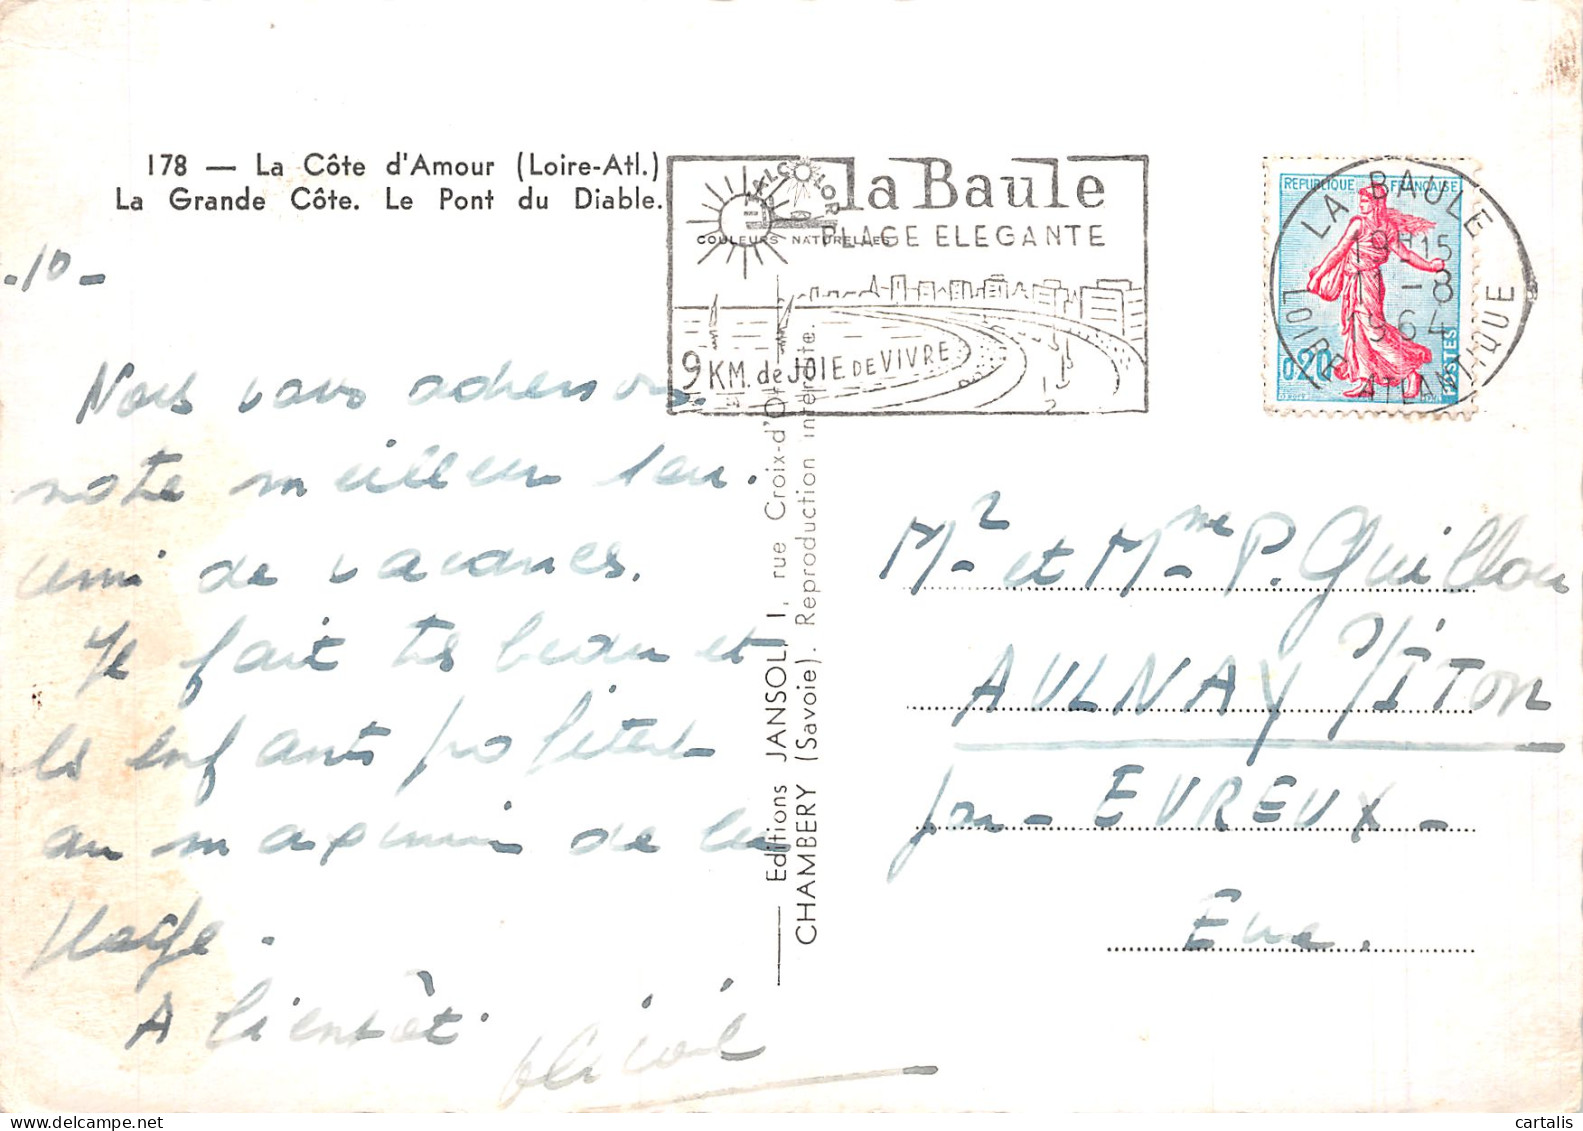 178 — La Côte d'Amour (Loire-Atl.)
La Grande Côte. Le Pont du Diable.
-10-
Nous vous adressons
notre meilleur sou-
veni de vacances.
Il fait très beau et
les enfants profitent
au maximum de la
plage.
A bientôt.
JALCOLOR
COULEURS NATURELLES
la Baule
PLAGE ELEGANTE
9 KM. de JOIE DE VIVRE
REPUBLIQUE FRANÇAISE
0,20
POSTES
LA BAULE
19H15
11-8
1964
LOIRE ATLANTIQUE
Editions JANSOL, 1, rue Croix-d'Or
CHAMBERY (Savoie). Reproduction interdite
Mr et Mme P. Guillou
AULNAY S/ITON
par - EVREUX -
Eure.
cartalis